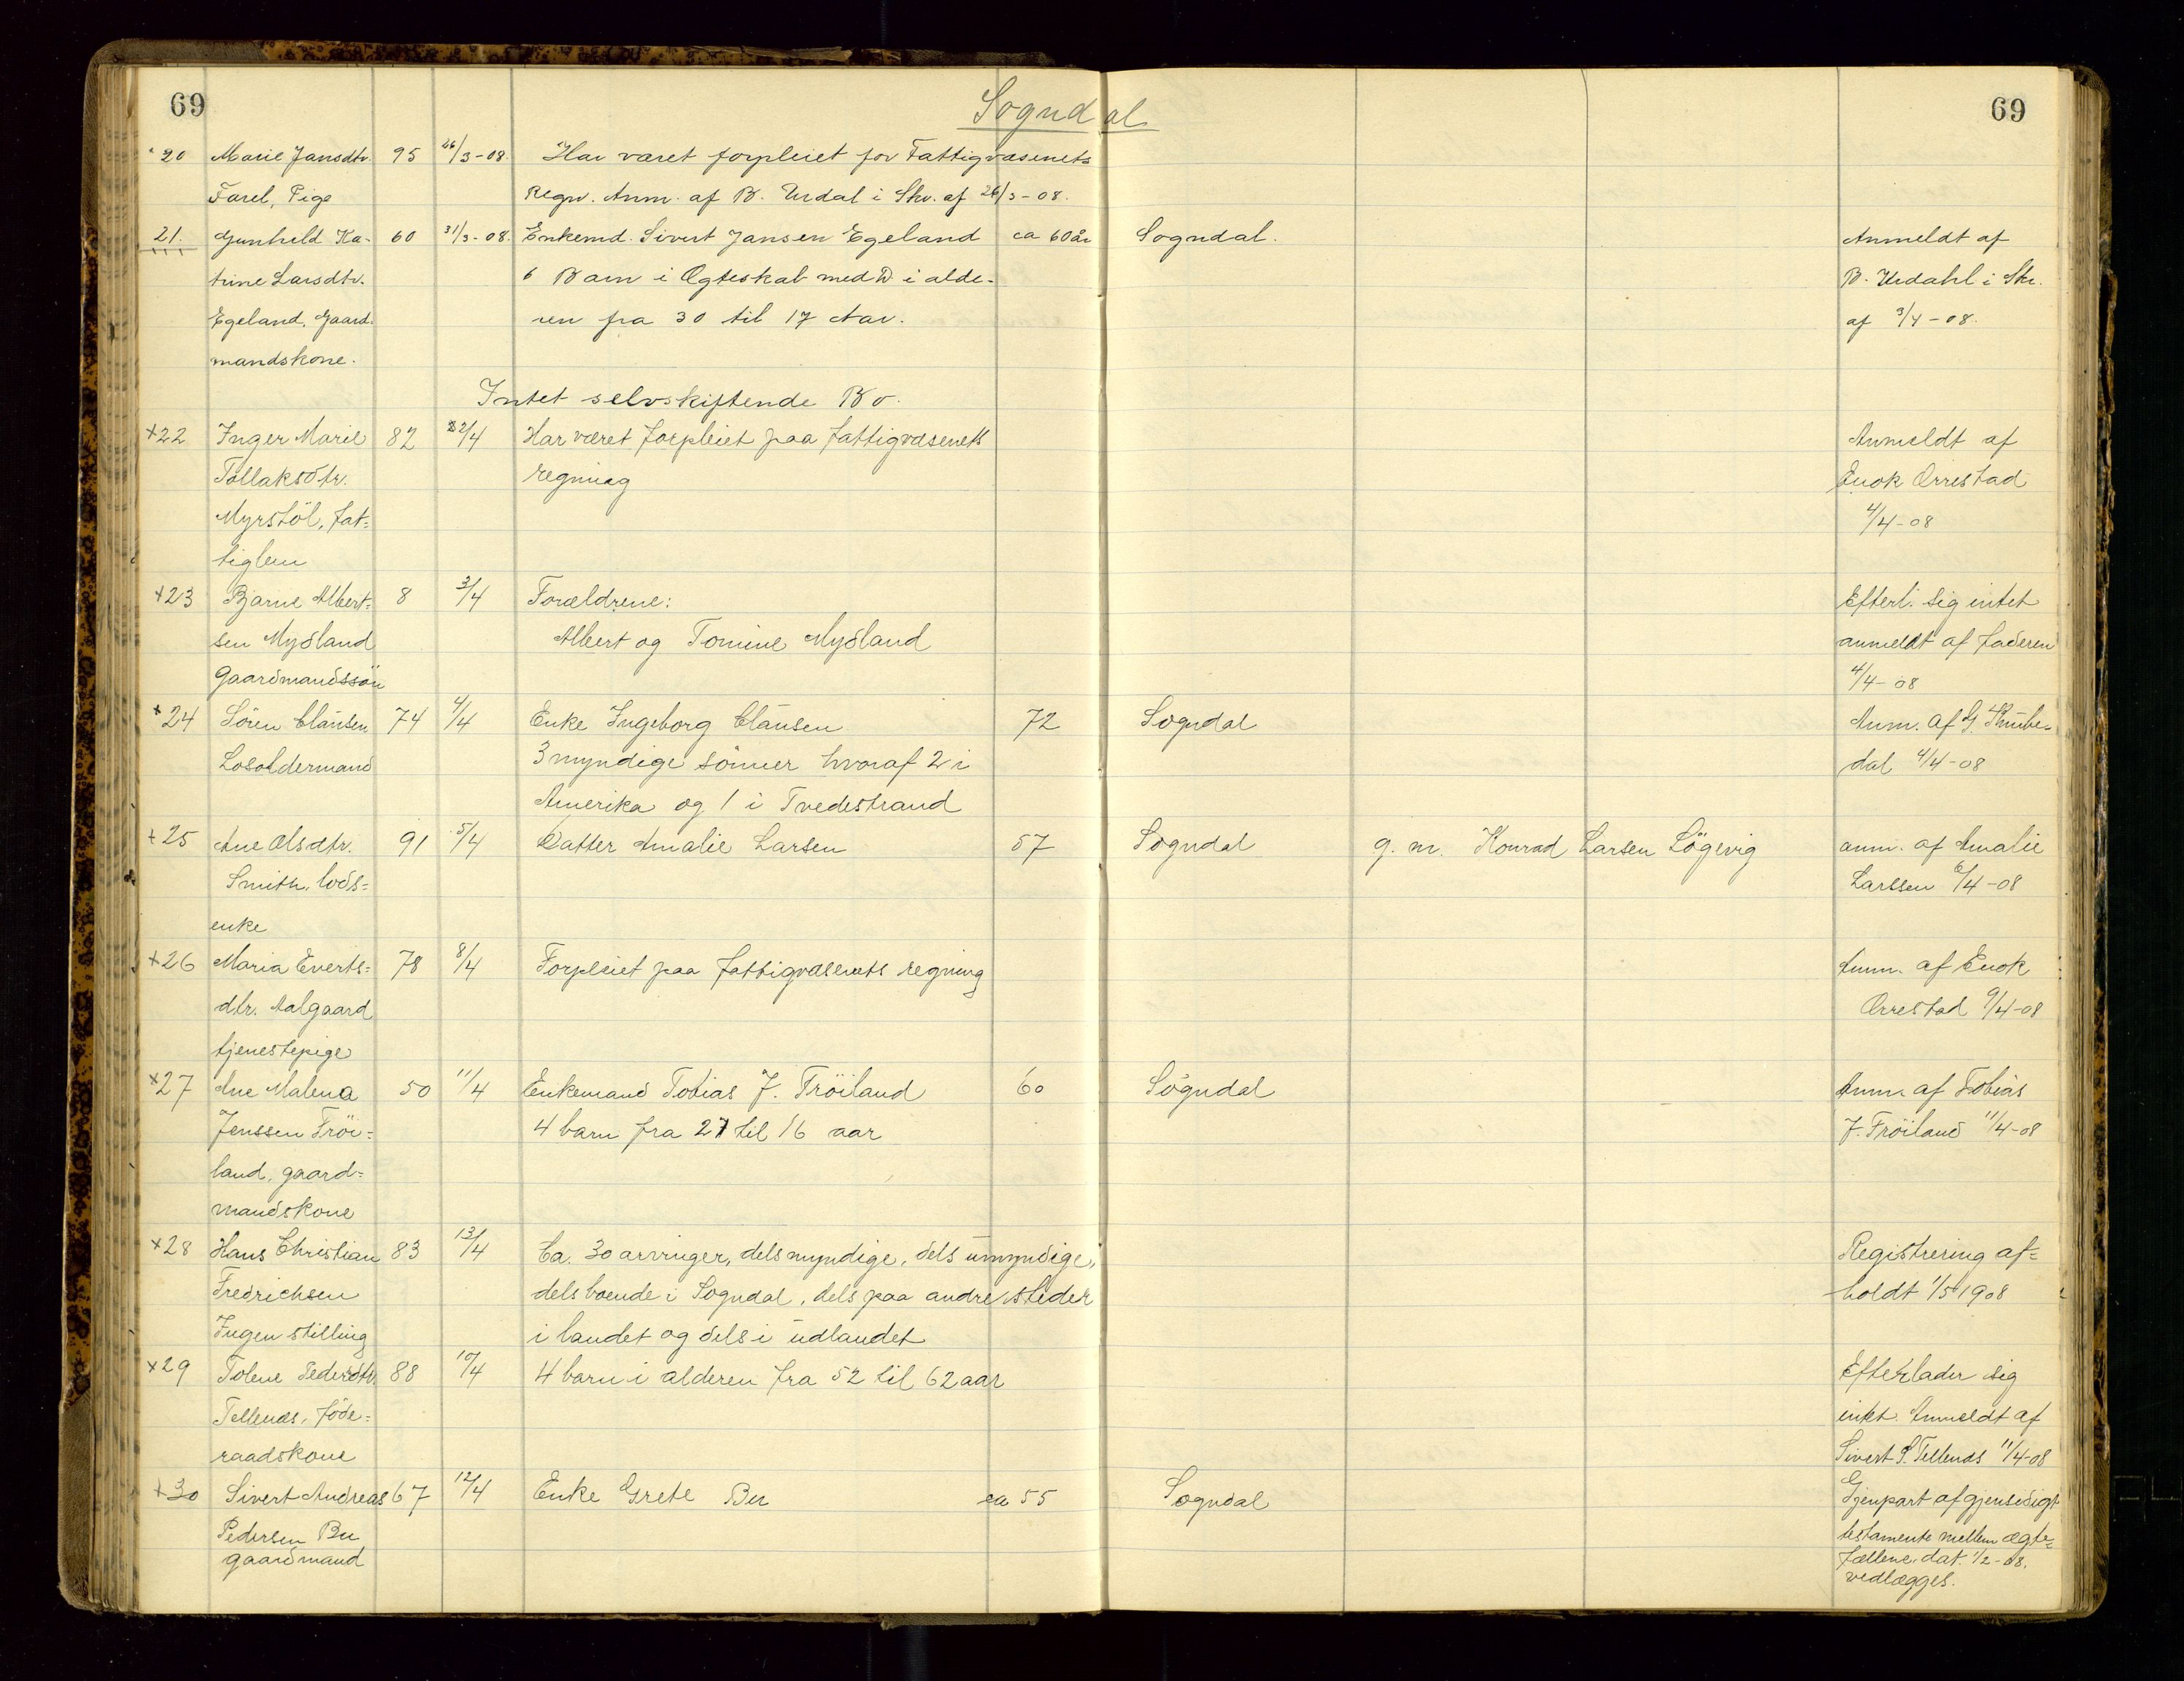 69
Sogndal
69
20 Marie Jansdtr. 95 26/3-08. Har været forpleiet for Fattigvæsenets
Farel, Pige Regn. Anm. af B. Urdal i Skr. af 26/3-08.
21. Gunhild Ka- 60 31/3-08. Enkemd. Sivert Jansen Egeland ca 60 år Sogndal. Anmeldt af
trine Larsdtr. 6 Barn i Ægteskab med D i alde- B. Urdahl i Skr.
Egeland, Gaard- ren fra 30 til 17 Aar. af 3/4-08.
mandskone.
Intet selvskiftende Bo.
+22 Inger Marie 82 2/4 Har været forpleiet paa fattigvæsenets Anmeldt af
Tollaksdtr. regning Enok Orrestad
Myrstöl, fat= 4/4-08
tiglem
+23 Bjarne Albert= 8 3/4 Forældrene: Efterl. sig intet
sen Mydland Albert og Tomine Mydland anmeldt af faderen
Gaardmandssön 4/4-08
+24 Sören Clausen 74 4/4 Enke Ingeborg Clausen 72 Sogndal Anm. af G.
Losoldermand 3 myndige sönner hvoraf 2 i dal 4/4-08
Amerika og 1 i Tvedestrand
+25 Ane Olsdtr. 91 5/4 Datter Amalie Larsen 57 Sogndal g. m. Konrad Larsen Lögevig anm. af Amalie
Smith, lods= Larssen 6/4-08
enke
+26 Maria Everts= 78 8/4 Forpleiet paa fattigvæsenets regning Anm. af Enok
dtr. Aalgaard Orrestad 9/4-08
tjenestepige
+27 Ane Malena 50 11/4 Enkemand Tobias J. Fröiland 60 Sogndal Anm. af Tobias
Jenssen Fröi= 4 barn fra 27 til 16 aar J. Fröiland 11/4-08
land, gaard=
mandskone
+28 Hans Christian 83 13/4 Ca. 30 arvinger, dels myndige, dels umyndige, Registrering af=
Fredrichsen dels boende i Sogndal, dels paa andre steder holdt 1/5 1908
Ingen stilling i landet og dels i udlandet
+29 Tolene Pedersdtr. 88 10/4 4 barn i alderen fra 52 til 62 aar Efterlader sig
Tellenes, föde= intet. Anmeldt af
raadskone Sivert P. Tellenes 11/4-08
+30 Sivert Andreas 67 12/4 Enke Grete Bu ca 55 Sogndal Gjenpart af gjensidigt
Pedersen Bu testamente mellem ægte=
gaardmand fællene, dat. 1/2-08,
vedlægges.